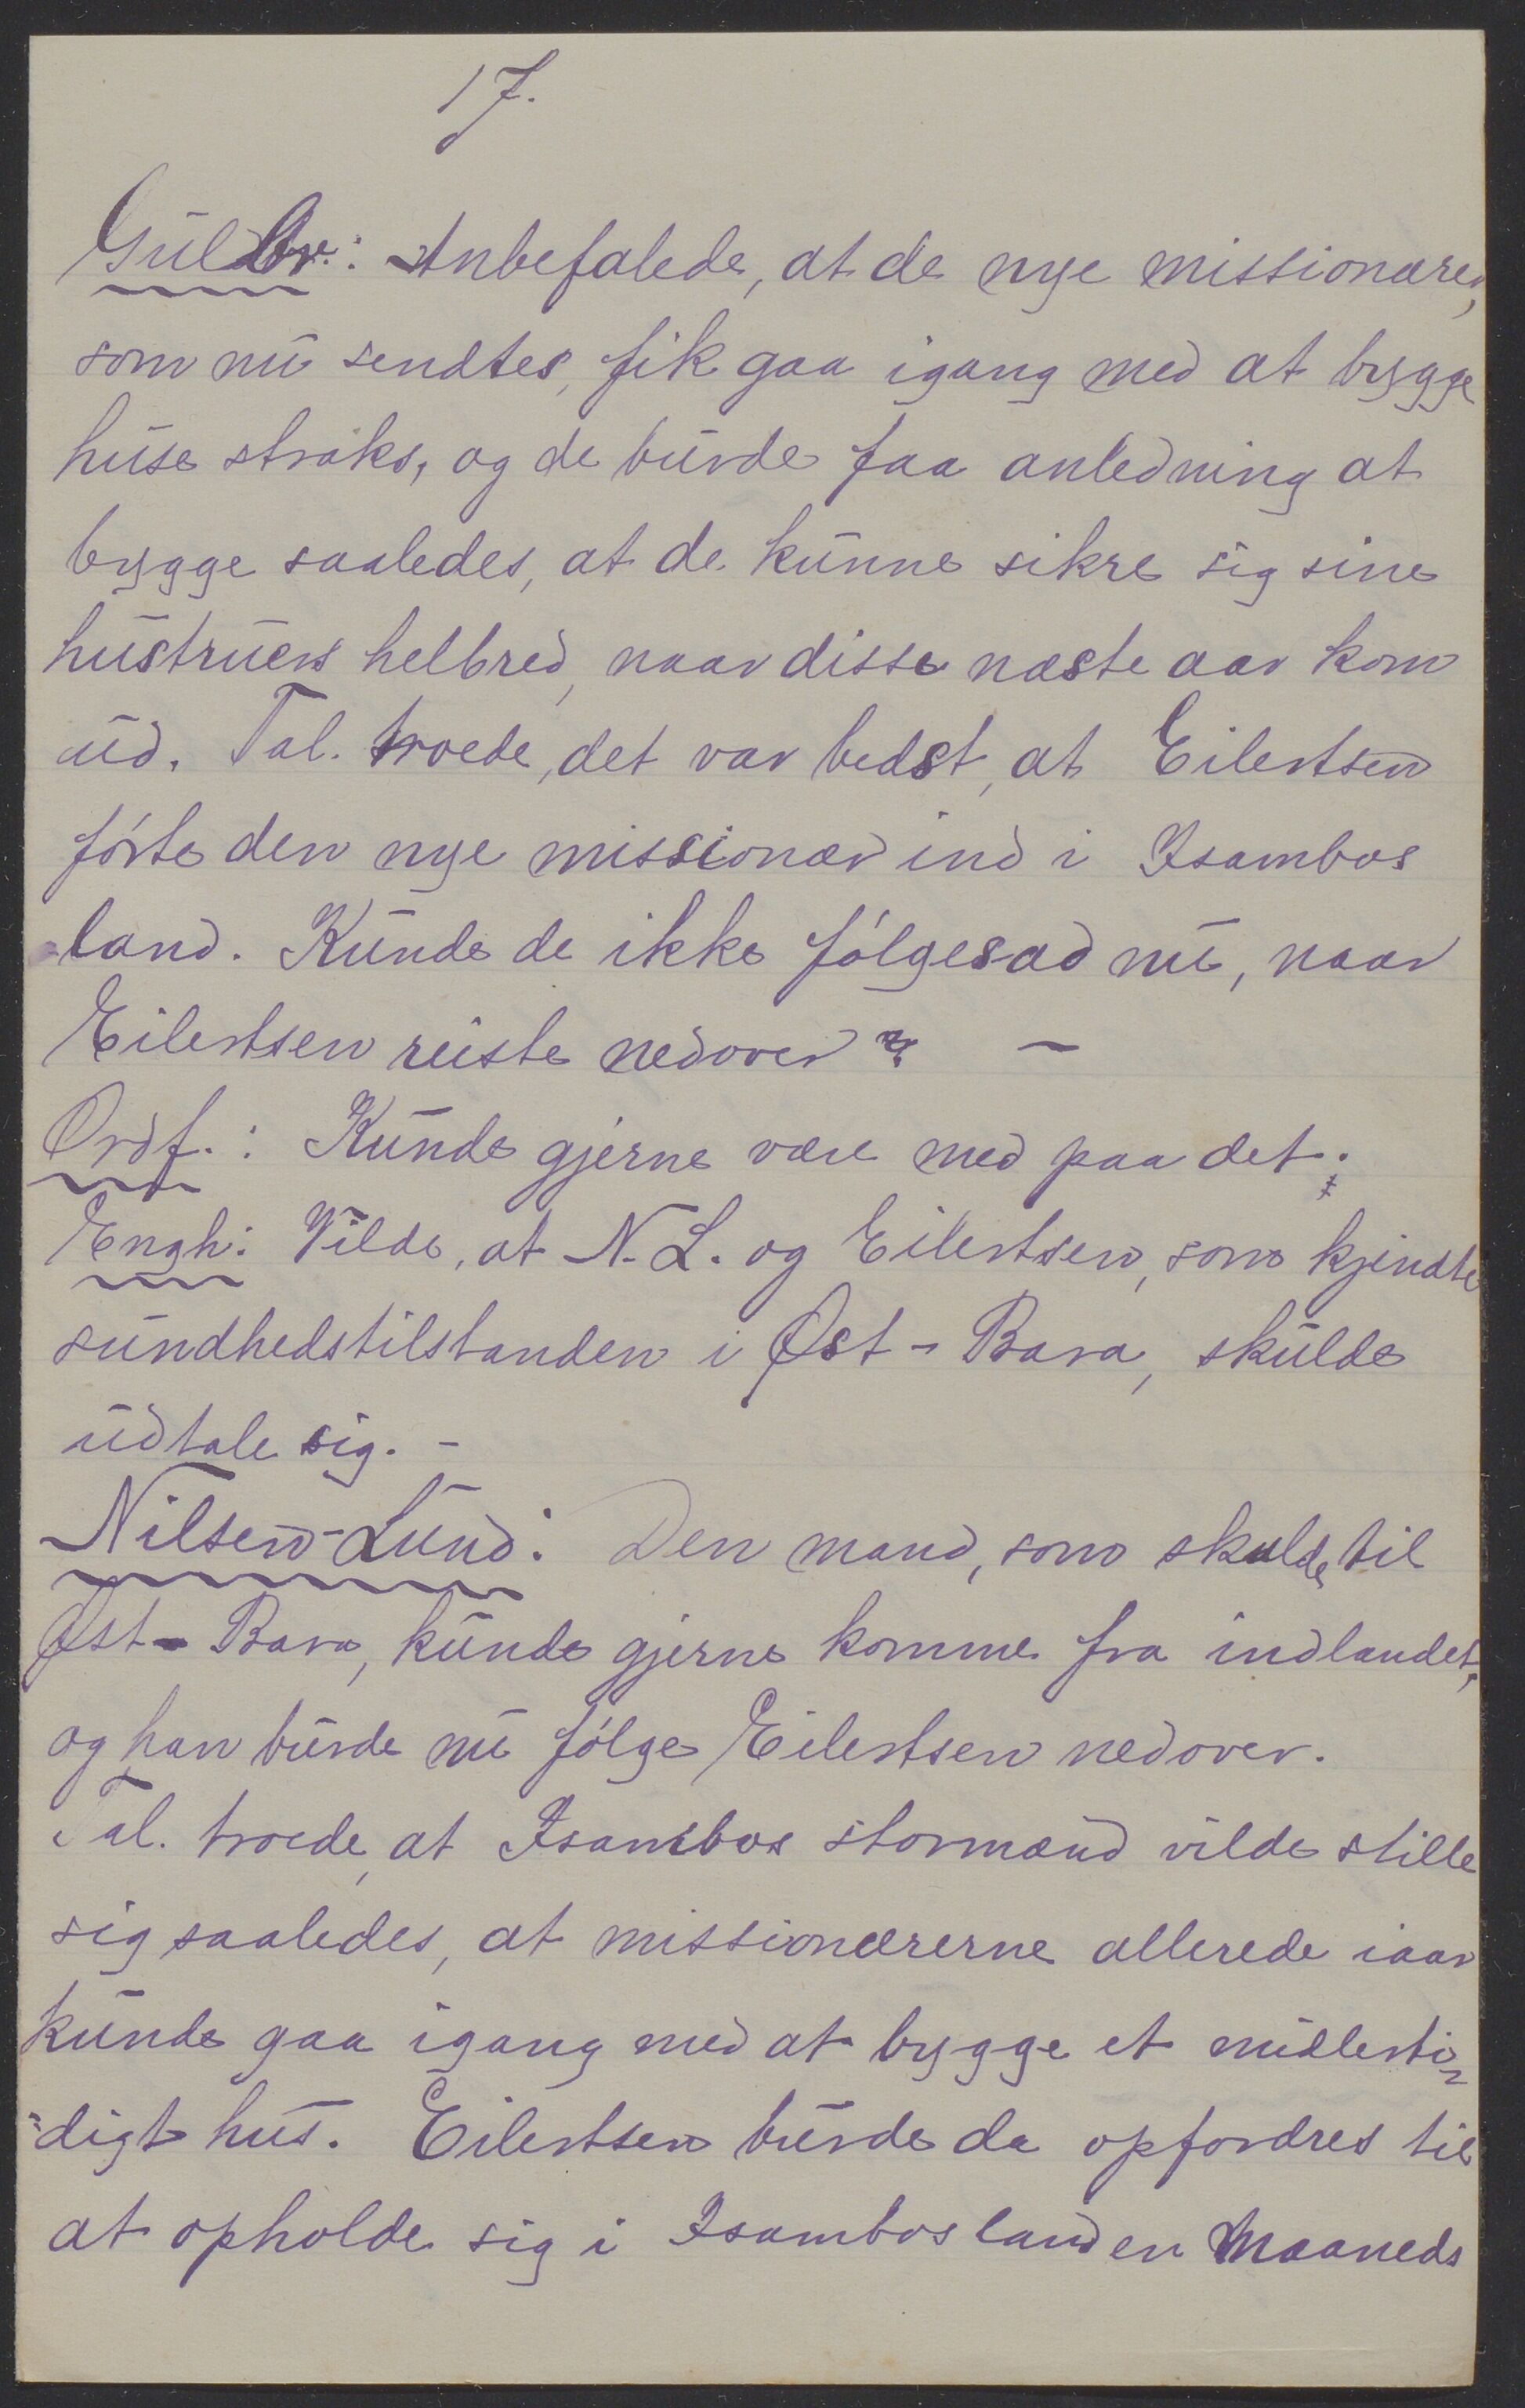 17.
Guldbr.: Anbefalede, at de nye missionærer,
som nu sendtes, fik gaa igang med at bygge
huse straks, og de burde faa anledning at
bygge saaledes, at de kunne sikre sig sine
hustruers helbred, naar disse næste aar kom
ud. Tal. troede, det var bedst, at Eilertsen
førte den nye missionær ind i Isambos
land. Kunde de ikke følgesad nu, naar
Eilertsen reiste nedover? –
Ordf.: Kunde gjerne være med paa det.
Engh: Vilde, at N.L. og Eilertsen, som kjendte
sundhedstilstanden i Øst-Bara, skulde
udtale sig. –
Nilsen-Lund: Den mand, som skulde til
Øst-Bara, kunde gjerne komme fra indlandet,
og han burde nu følge Eilertsen nedover.
Tal. troede, at Isambos stormænd vilde stille
sig saaledes, at missionærerne allerede iaar
kunde gaa igang med at bygge et midlerti-
digt hus. Eilertsen burde da opfordres til
at opholde sig i Isambos land en Maaneds